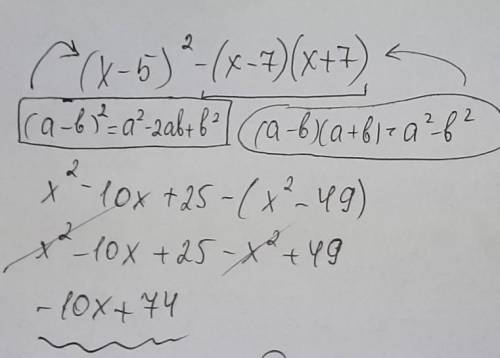 (x-5)² - (x-7)(x+7)
(a-b)² = a²-2ab+b² (a-b)(a+b) = a²-b²
x² - 10x + 25 - (x² - 49)
x² - 10x + 25 - x² + 49
-10x + 74